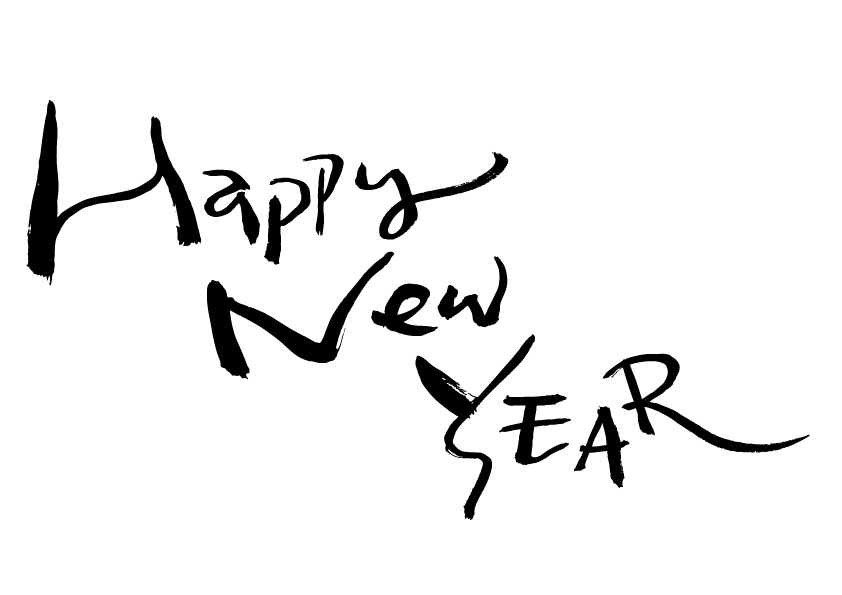 Happy
New
YEAR